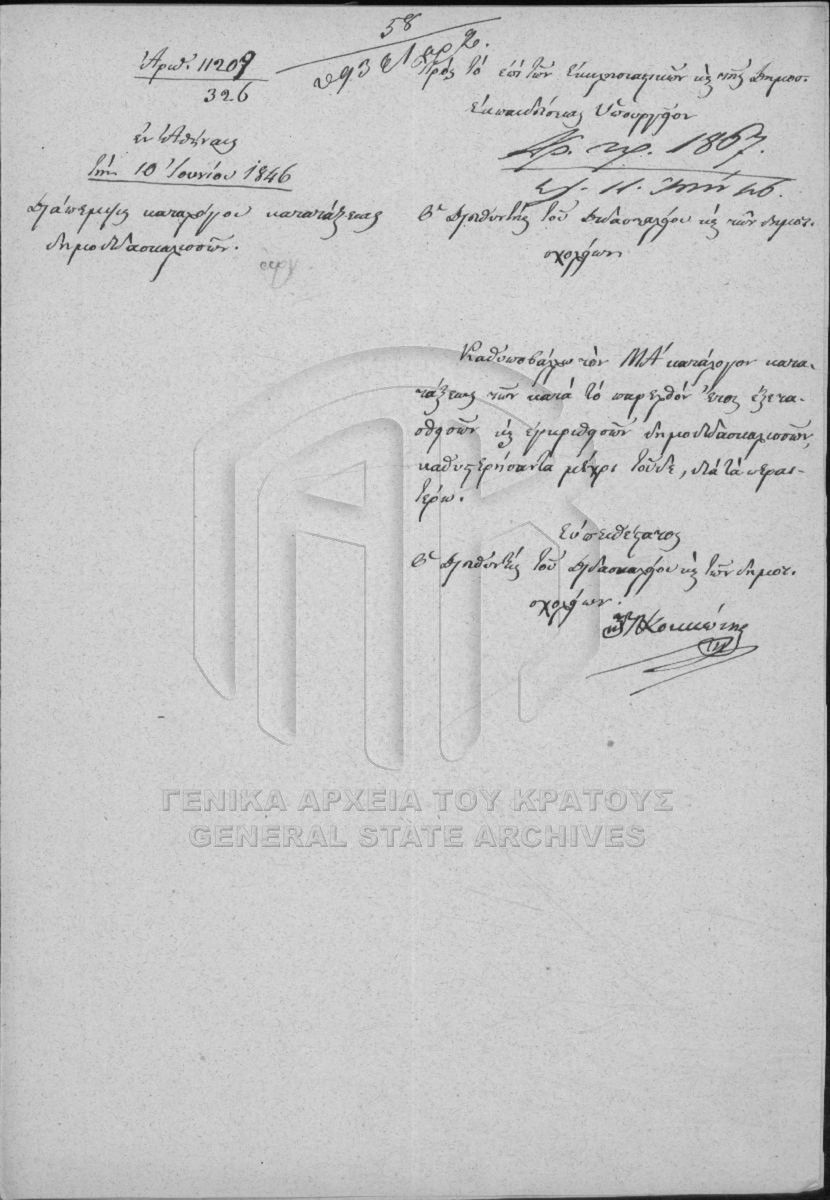 58
Ἀριθ. 11209
326
ἐν Ἀθήναις
τῇ 10 Ἰουνίου 1846
Διάπεμψις καταλόγου κατατάξεως
δημοδιδασκαλισσῶν.
Πρὸς τὸ ἐπὶ τῶν Ἐκκλησιαστικῶν κ τῆς Δημοσ.
Ἐκπαιδεύσεως Ὑπουργεῖον
πρ. 1867.
Ὁ Διευθυντὴς τοῦ Διδασκαλείου κ τῶν δημοτ.
σχολείων
Καθυποβάλλω τὸν ΜΑʹ κατάλογον κατα-
τάξεως τῶν κατὰ τὸ παρελθὸν ἔτος ἐξετα-
σθεισῶν κ ἐγκριθεισῶν δημοδιδασκαλισσῶν,
καθυστερήσαντα μέχρι τοῦδε, διὰ τὰ περαι-
τέρω.
Εὐπειθέστατος
Ὁ Διευθυντὴς τοῦ Διδασκαλείου κ τῶν δημοτ.
σχολείων.
Κοκκώνης
ΓΕΝΙΚΑ ΑΡΧΕΙΑ ΤΟΥ ΚΡΑΤΟΥΣ
GENERAL STATE ARCHIVES